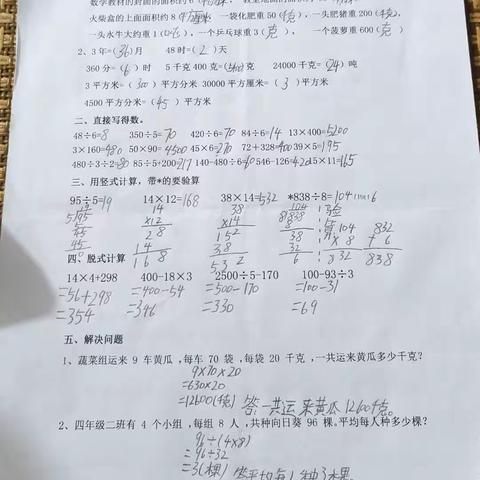 火柴盒的上面面积约8(平方厘米) 一袋化肥重50(千克),一头肥猪重200(千克),
一头水牛大约重1(吨),一个乒乓球重3(克),一个菠萝重600(克)
2、3年=(36)月 48时=(2)天
360分=(6)时 5千克400克=(5400)克 24000千克=(24)吨
3平方米=(300)平方分米 30000平方厘米=(3)平方米
4500平方分米=(45)平方米
二、直接写得数。
48÷6=8 350÷5=70 420÷6=70 84÷6=14 13×400=5200
3×160=480 50×90=4500 45×6=270 72+328=400 39×5=195
480÷3÷2=80 85÷5+200=217 140-480÷6=60 546-126=420 15×11=165
三、用竖式计算,带*的要验算
95÷5=19 14×12=168 38×14=532 *838÷8=104(余)6
四、脱式计算
14×4+298 400-18×3 2500÷5-170 100-93÷3
=56+298 =400-54 =500-170 =100-31
=354 =346 =330 =69
五、解决问题
1、蔬菜组运来9车黄瓜,每车70袋,每袋20千克,一共运来黄瓜多少千克?
9×70×20
=630×20
=12600(千克) 答:一共运来黄瓜12600千克。
2、四年级二班有4个小组,每组8人,共种向日葵96棵。平均每人种多少棵?
96÷(4×8)
=96÷32
=3(棵) 答:平均每人种3棵。